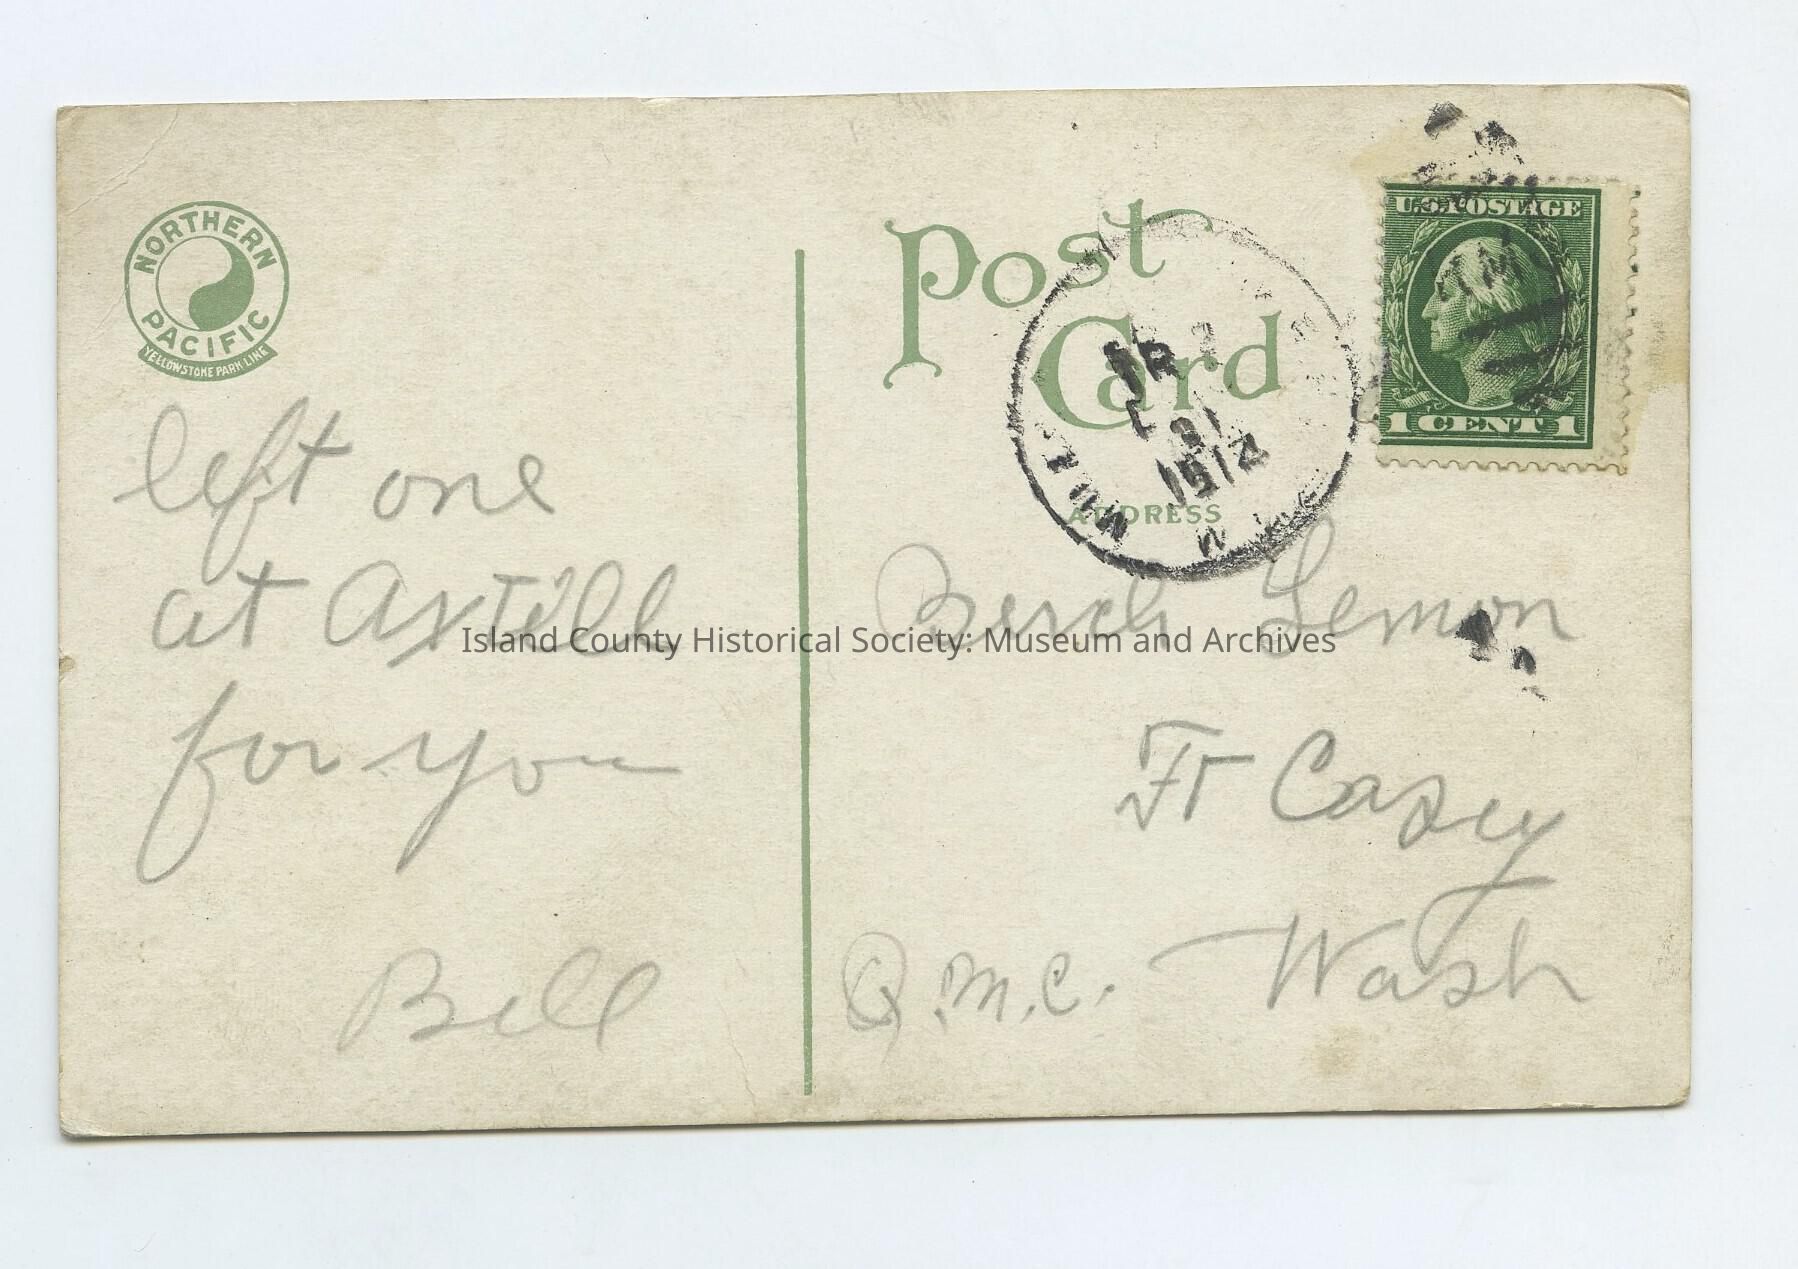 NORTHERN
PACIFIC
YELLOWSTONE PARK LINE
Post
Card
U.S. POSTAGE
1 CENT 1
1912
ADDRESS
left one
at Axtell
for you
Bill
Lemon
Ft Casey
Q.M.C. Wash
Island County Historical Society: Museum and Archives